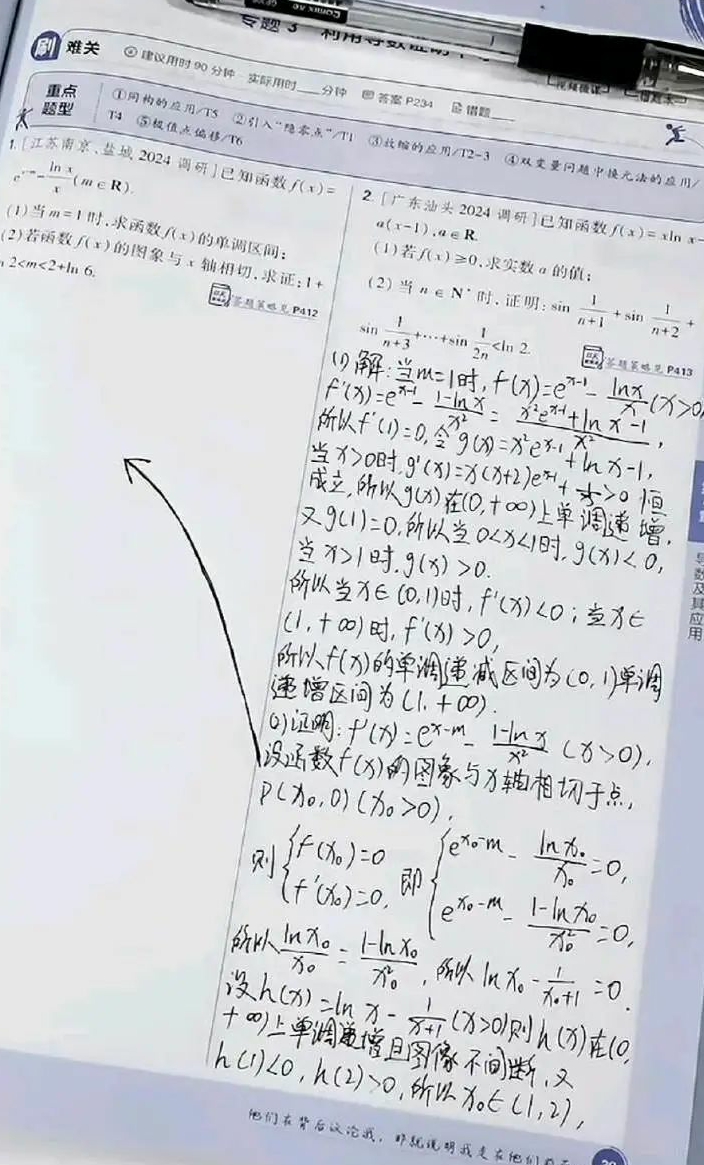 专题3 利用导数证明
刷 难关 建议用时90分钟 实际用时____分钟 答案P234 错题____
重点题型 ①同构的应用/T5 ②引入“隐零点”/T1 ③放缩的应用/T2-3 ④双变量问题中换元法的应用/
T4 ⑤极值点偏移/T6
1.[江苏南京、盐城2024调研]已知函数f(x)=
e^{x-m}-\frac{\ln x}{x}(m∈R).
(1)当m=1时,求函数f(x)的单调区间;
(2)若函数f(x)的图象与x轴相切,求证:1+
n 2<m<2+ln 6.
答题策略见P412
2.[广东汕头2024调研]已知函数f(x)=xln x-
a(x-1),a∈R.
(1)若f(x)≥0,求实数a的值;
(2)当n∈N*时,证明:sin \frac{1}{n+1}+sin \frac{1}{n+2}+
sin \frac{1}{n+3}+…+sin \frac{1}{2n}<ln 2.
答题策略见P413
(1)解:当m=1时,f(x)=e^{x-1}-\frac{lnx}{x}(x>0)
f'(x)=e^{x-1}-\frac{1-lnx}{x²}=\frac{x²e^{x-1}+lnx-1}{x²},
所以f'(1)=0,令g(x)=x²e^{x-1}+lnx-1,
当x>0时,g'(x)=x(x+2)e^{x-1}+\frac{1}{x}>0恒
成立,所以g(x)在(0,+∞)上单调递增,
又g(1)=0,所以当0<x<1时,g(x)<0,
当x>1时,g(x)>0.
所以当x∈(0,1)时,f'(x)<0;当x∈
(1,+∞)时,f'(x)>0,
所以f(x)的单调递减区间为(0,1)单调
递增区间为(1,+∞).
(2)证明:f'(x)=e^{x-m}-\frac{1-lnx}{x²}(x>0),
设函数f(x)的图象与x轴相切于点,
P(x₀,0)(x₀>0),
则{f(x₀)=0 f'(x₀)=0, 即{e^{x₀-m}-\frac{lnx₀}{x₀}=0, e^{x₀-m}-\frac{1-lnx₀}{x₀²}=0,
所以\frac{lnx₀}{x₀}=\frac{1-lnx₀}{x₀²},所以lnx₀-\frac{1}{x₀+1}=0.
设h(x)=lnx-\frac{1}{x+1}(x>0)则h(x)在(0,
+∞)上单调递增且图像不间断,又
h(1)<0,h(2)>0,所以x₀∈(1,2),
导数及其应用
他们在背后议论我,那就说明我走在他们前